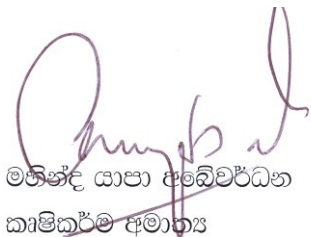 මහින්ද යාපා අබේවර්ධන
කෘෂිකර්ම අමාත්‍ය